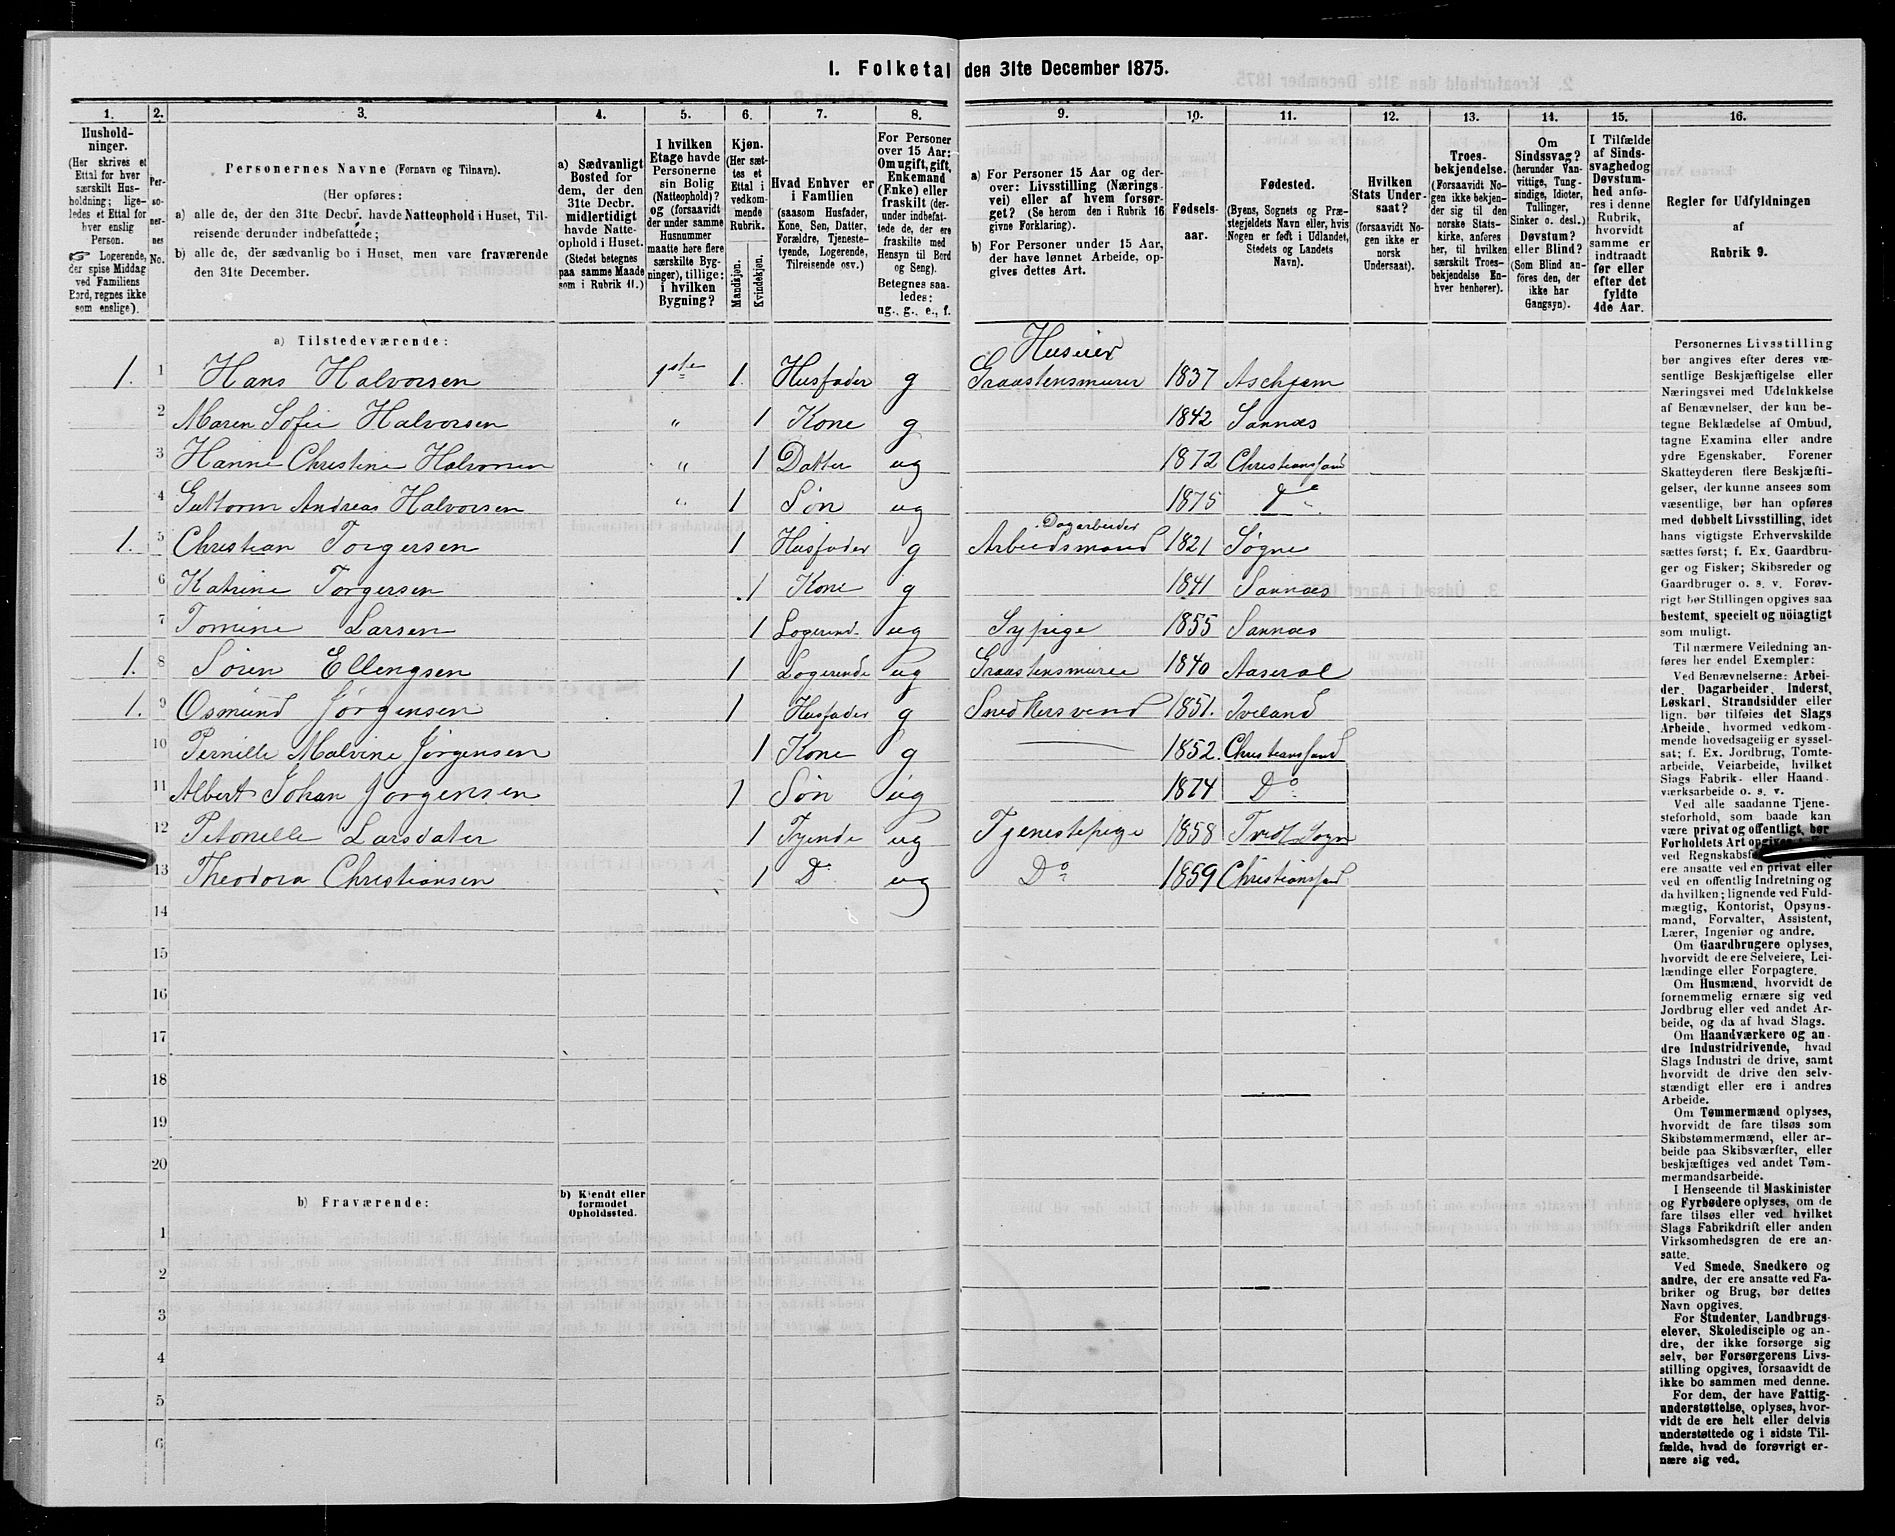 1. Folketal den 31te December 1875.
1. 2. 3. 4. 5. 6. 7. 8. 9. 10. 11. 12. 13. 14. 15. 16.
Hushold-
ninger.
(Her skrives et
Ettal for hver
særskilt Hus-
holdning; lige-
ledes et Ettal for
hver enslig
Person.
☞ Logerende,
der spise Middag
ved Familiens
Bord, regnes ikke
som enslige).
Per-
so-
ner-
nes
No.
Personernes Navne (Fornavn og Tilnavn).
(Her opføres:
a) alle de, der den 31te Decbr. havde Natteophold i Huset, Til-
reisende derunder indbefattede;
b) alle de, der sædvanlig bo i Huset, men vare fraværende
den 31te December.
a) Sædvanligt
Bosted for
dem, der den
31te Decbr.
midlertidigt
havde Natte-
ophold i Huset.
(Stedet betegnes
paa samme Maade
som i Rubrik 11.)
I hvilken
Etage havde
Personerne
sin Bolig
(Natteophold)?
og (forsaavidt
der under samme
Husnummer
maatte høre flere
særskilte Byg-
ninger), tillige:
i hvilken
Bygning?
Kjøn.
(Her sæt-
tes et
Ettal i
vedkom-
mende
Rubrik.
Mandkjøn.
Kvindekjøn.
Hvad Enhver er
i Familien
(saasom Husfader,
Kone, Søn, Datter,
Forældre, Tjeneste-
tyende, Logerende,
Tilreisende osv.)
For Personer
over 15 Aar:
Om ugift, gift,
Enkemand
(Enke) eller
fraskilt (der-
under indbefat-
tede de, der ere
fraskilte med
Hensyn til Bord
og Seng).
Betegnes saa-
ledes:
ug., g., e., f.
a) For Personer 15 Aar og der-
over: Livsstilling (Nærings-
vei) eller af hvem forsør-
get? (Se herom den i Rubrik 16
givne Forklaring).
b) For Personer under 15 Aar,
der have lønnet Arbeide, op-
gives dettes Art.
Fødsels-
aar.
Fødested.
(Byens, Sognets og Præ-
stegjeldets Navn eller, hvis
Nogen er født i Udlandet,
Stedets og Landets
Navn).
Hvilken
Stats Under-
saat?
(forsaavidt No-
gen ikke er
norsk
Undersaat).
Troes-
bekjendelse.
(Forsaavidt No-
gen ikke bekjen-
der sig til den
norske Stats-
kirke, anføres
her, til hvilken
særskilt Troes-
bekjendelse En-
hver henhører).
Om
Sindssvag?
(herunder Van-
vittige, Tung-
sindige, Idioter,
Tullinger,
Sinker o. desl.)
Døvstum?
eller Blind?
(Som Blind an-
føres den, der
ikke har
Gangsyn).
I Tilfælde
af Sinds-
svaghed og
Døvstum-
hed anfø-
res i denne
Rubrik,
hvorvidt
samme er
indtraadt
før eller
efter det
fyldte
4de Aar.
Regler for Udfyldningen
af
Rubrik 9.
a) Tilstedeværende:
Huseier
1. 1 Hans Halvorsen 1ste 1. Husfader g Graastensmurer 1837 Aschjem
2 Maren Sofie Halvorsen " 1 Kone g 1842 Sannæs
3 Hanne Christine Halvorsen " 1 Datter ug 1872 Christianssand
4 Guttorm Andreas Halvorsen " 1 Søn ug 1875 Do
Dagarbeider
1. 5 Christian Torgersen 1 Husfader g Arbeidsmand 1821 Søgne
6 Katrine Torgersen 1 Kone g 1841 Sannæs
7 Tomine Larsen 1 Logerend. ug Sypige 1855 Sannæs
1. 8 Søren Ellengsen 1 Logerende ug Graastensmurer 1840 Aaseral
1. 9 Osmund Jørgensen 1 Husfader g Snedkersvend 1851. Iveland
10 Pernille Malvine Jørgensen 1 Kone g 1852. Christianssand
11 Albert Johan Jørgensen 1 Søn ug 1874 Do
12 Petonelle Larsdater 1 Tyende ug Tjenestepige 1858 Tvedt Sogn
13 Theodora Christiansen 1 Do ug Do 1859 Christianssand
14
15
16
17
18
19
20
b) Fraværende:
b) Kjendt eller
formodet
Opholdssted.
1
2
3
4
5
6
Personernes Livsstilling
bør angives efter deres væ-
sentlige Beskjæftigelse eller
Næringsvei med Udelukkelse
af Benævnelser, der kun be-
tegne Beklædelse af Ombud,
tagne Examina eller andre
ydre Egenskaber. Forener
Skatteyderen flere Beskjæfti-
gelser, der kunne ansees som
væsentlige, bør han opføres
med dobbelt Livsstilling, idet
hans vigtigste Erhvervskilde
sættes først; f. Ex. Gaardbru-
ger og Fisker; Skibsreder og
Gaardbruger o. s. v. Forøv-
rigt bør Stillingen opgives saa
bestemt, specielt og nöiagtigt
som muligt.
Til nærmere Veiledning an-
føres her endel Exempler:
Ved Benævnelserne: Arbei-
der, Dagarbeider, Inderst,
Løskarl, Strandsidder eller
lign. bør tilføies det Slags
Arbeide, hvormed vedkom-
mende hovedsagelig er syssel-
sat; f. Ex. Jordbrug, Tomte-
arbeide, Veiarbeide, hvilket
Slags Fabrik- eller Haand-
værksarbeide o. s. v.
Ved alle saadanne Tjene-
steforhold, som baade kan
være privat og offentligt, bør
Forholdets Art opgives,
ved Regnskabsf
ere ansatte ved en privat eller
ved en offentlig Indretning og
da hvilken; lignende ved Fuld-
mægtig, Kontorist, Opsyns-
mand, Forvalter, Assistent,
Lærer, Ingeniør og andre.
Om Gaardbrugere oplyses,
hvorvidt de ere Selveiere, Lei-
lændinge eller Forpagtere.
Om Husmænd, hvorvidt de
fornemmelig ernære sig ved
Jordbrug eller ved andet Ar-
beide, og da af hvad Slags.
Om Haandværkere og an-
dre Industridrivende, hvad
Slags Industri de drive, samt
hvorvidt de drive den selv-
stændigt eller ere i andres
Arbeide.
Om Tømmermænd oplyses,
hvorvidt de fare tilsøs som
Skibstømmermænd, eller ar-
beide paa Skibsværfter, eller
beskjæftiges ved andet Tøm-
mermandsarbeide.
I Henseende til Maskinister
og Fyrbødere oplyses, om de
fare tilsøs eller ved hvilket
Slags Fabrikdrift eller anden
Virksomhedsgren de ere an-
satte.
Ved Smede, Snedkere og
andre, der ere ansatte ved Fa-
briker og Brug, bør dettes
Navn opgives.
For Studenter, Landbrugs-
elever, Skoledisciple og an-
dre, der ikke forsørge sig
selv, bør Forsørgerens Livs-
stilling opgives, forsaavidt de
ikke bo sammen med denne.
For dem, der have Fattig-
understøttelse, oplyses, hvor-
vidt de ere helt eller delvis
understøttede og i sidste Til-
fælde, hvad de forøvrigt er-
nære sig ved.